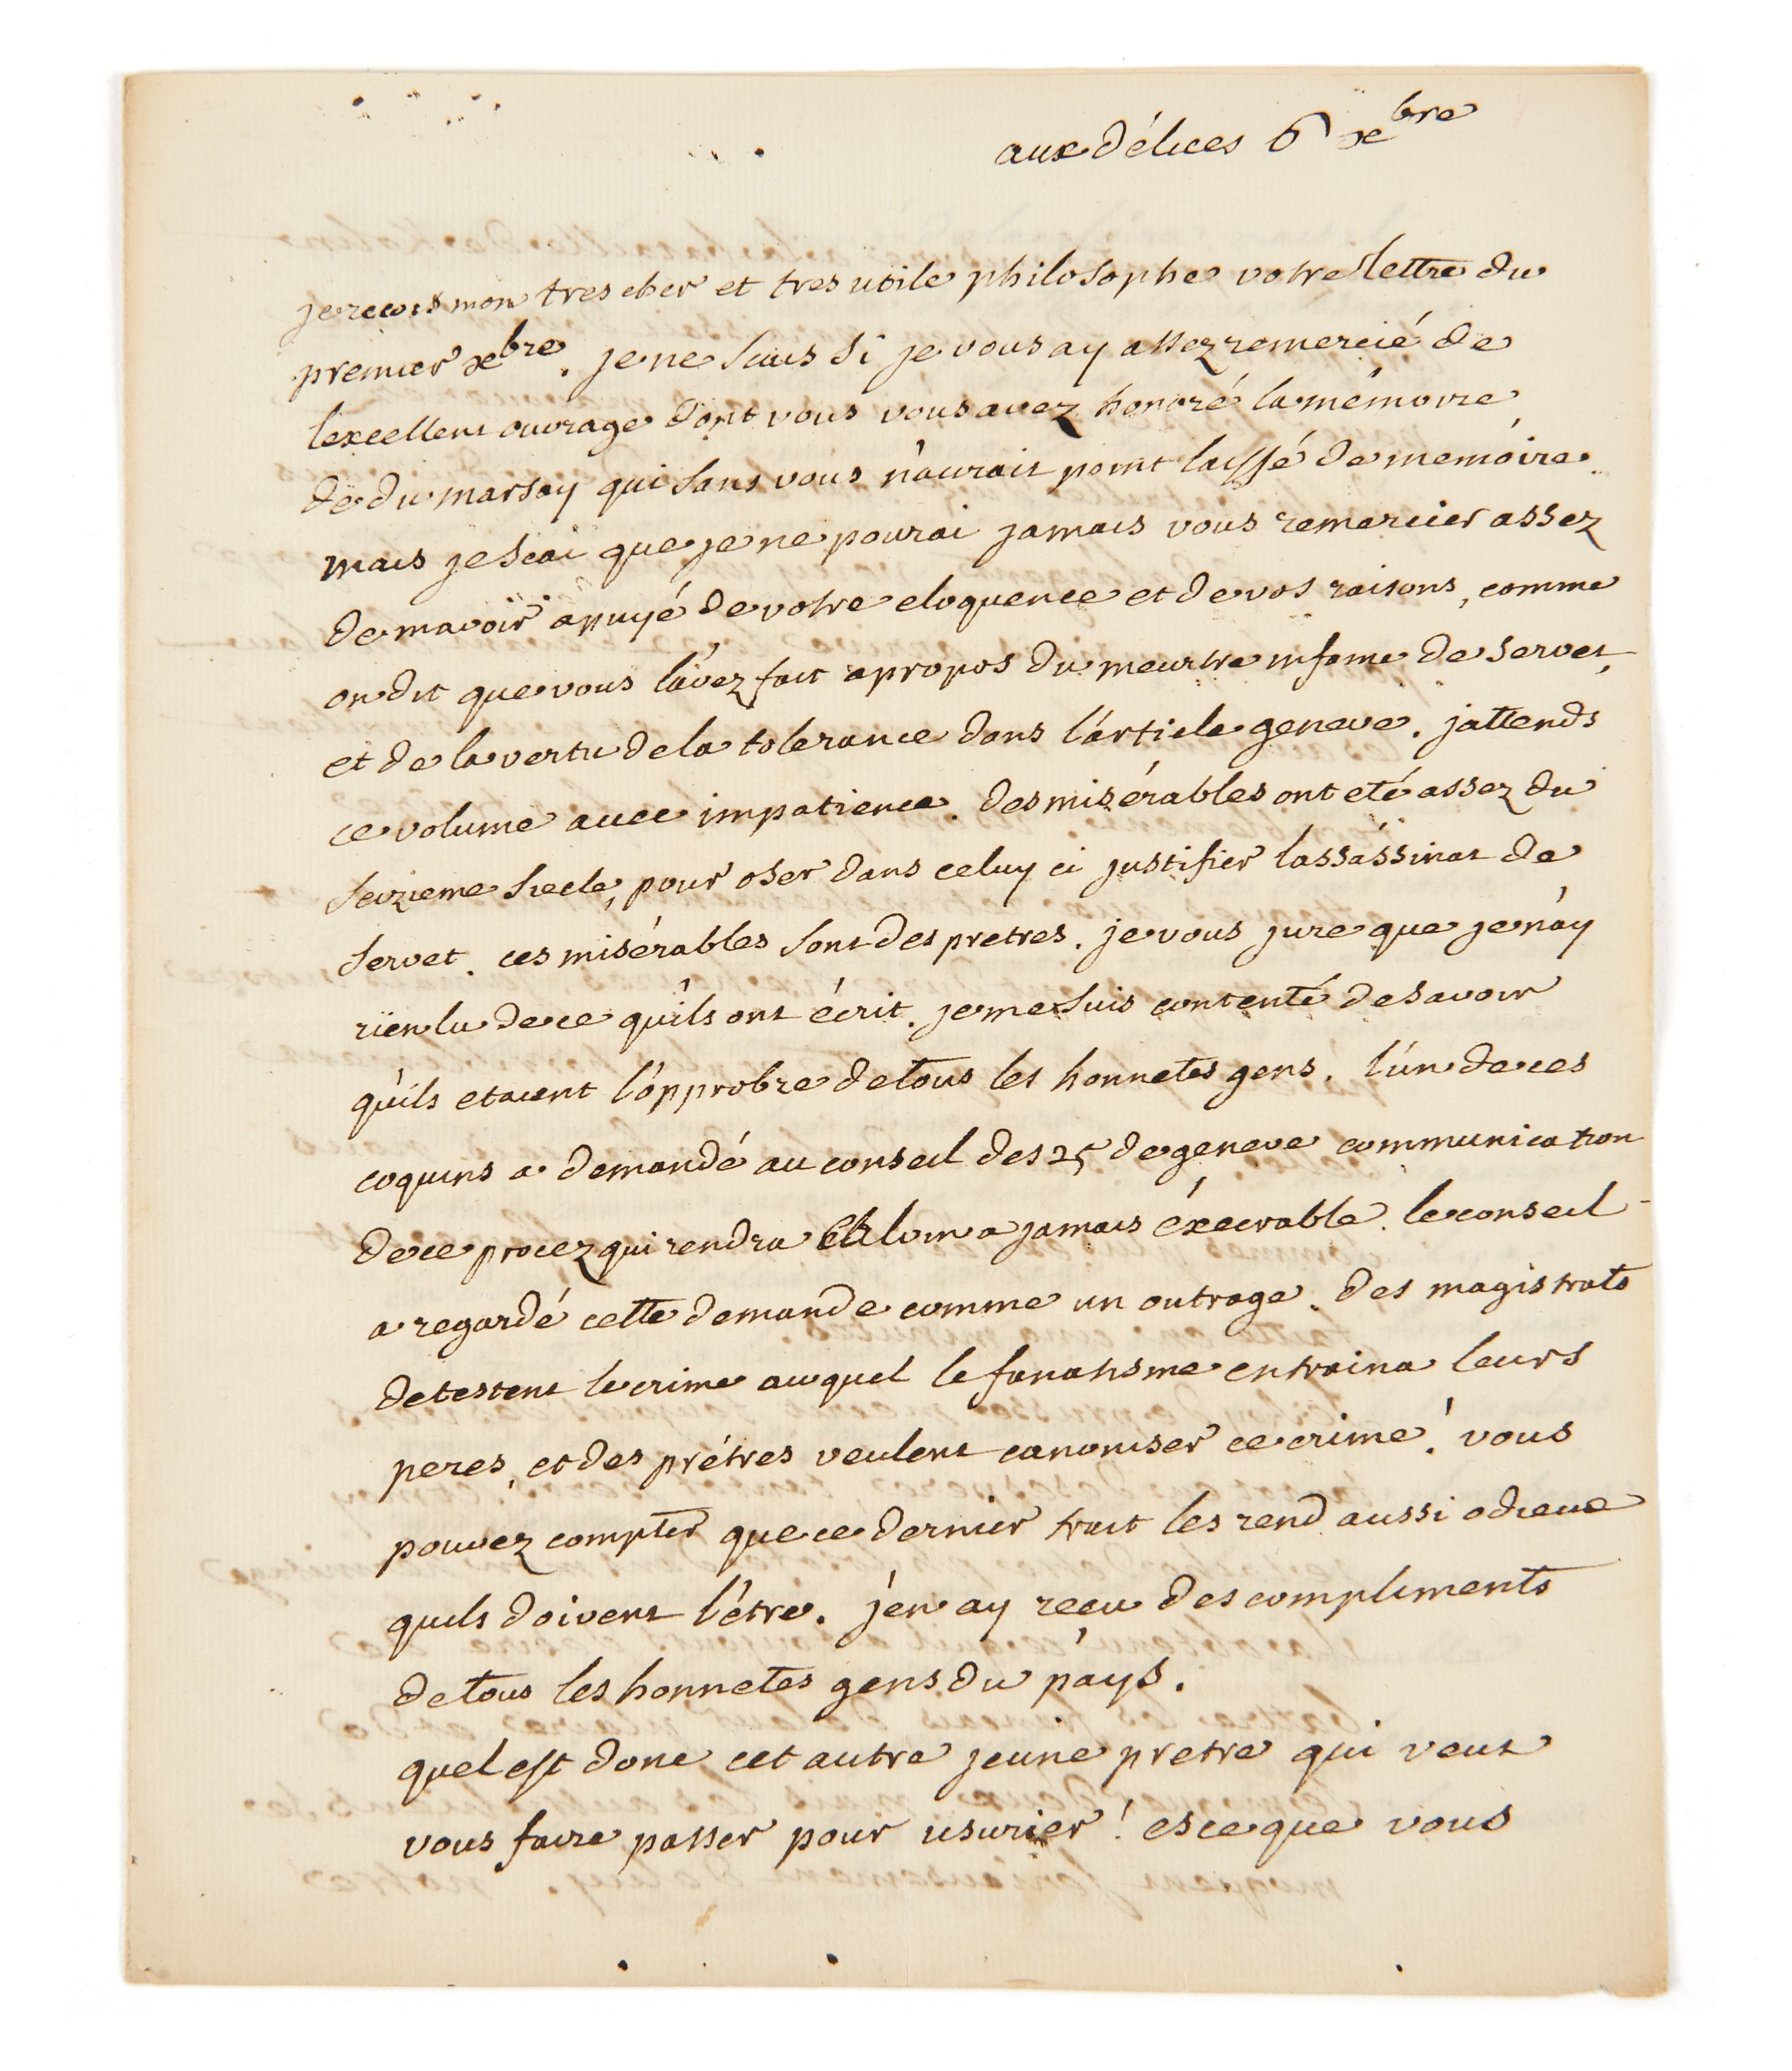 aux délices 6 xbre
je recois mon tres cher et tres utile philosophe votre lettre du
premier xbre. je ne scais si je vous ay assez remercié de
lexcellent ouvrage dont vous vous avez honoré la mémoire
de du marsay qui sans vous n'aurait point laissé de memoire.
mais je scai que je ne pourai jamais vous remercier assez
de mavoir apuyé de votre eloquence et de vos raisons, comme
on dit que vous l'avez fait apropos du meurtre infame de servet,
et de la vertu de la tolerance dans l'article geneve. jattends
ce volume avec impatience. des misérables ont eté assez du
seizieme siecle, pour oser dans celuy ci justifier lassassinat de
servet. ces misérables sont des pretres. je vous jure que je n'ay
rien lu de ce qu'ils ont écrit. je me suis contenté de savoir
qu'ils etaient l'opprobre de tous les honnetes gens. l'un de ces
coquins a demandé au conseil des 25 de geneve communication
de ce procez qui rendra Calvin a jamais éxécrable. le conseil
a regardé cette demande comme un outrage. des magistrats
detestent le crime auquel le fanatisme entraina leurs
peres, et des prétres veulent canoniser ce crime! vous
pouvez compter que ce dernier trait les rend aussi odieux
quils doivent l'étre. j'en ay reçu des compliments
de tous les honnetes gens du pays.
quel est donc cet autre jeune pretre qui veut
vous faire passer pour usurier! esce que vous